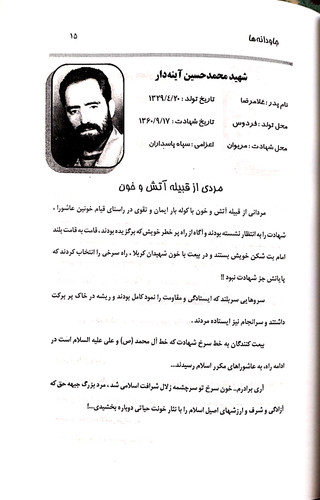 جاودانه‌ها
۱۵
شهید محمدحسین آینه‌دار
نام پدر : غلامرضا
تاریخ تولد : ۱۳۲۹/۴/۲۰
محل تولد : فردوس
تاریخ شهادت : ۱۳۶۰/۹/۱۷
محل شهادت : مریوان
اعزامی : سپاه پاسداران
مردی از قبیله آتش و خون
مردانی از قبیله آتش و خون با کوله بار ایمان و تقوی در راستای قیام خونین عاشورا ،
شهادت را به انتظار نشسته بودند و آگاه از راه پر خطر خویش که برگزیده بودند ، قامت به قامت بلند
امام بت شکن خویش بستند و در بیعت با خون شهیدان کربلا ، راه سرخی را انتخاب کردند که
پایانش جز شهادت نبود !!
سروهایی سربلند که ایستادگی و مقاومت را نمود کامل بودند و ریشه در خاک پر برکت
داشتند و سرانجام نیز ایستاده مردند .
بیعت کنندگان به خط سرخ شهادت که خط آل محمد (ص) و علی علیه السلام است در
ادامه راه، به عاشوراهای مکرر اسلام رسیدند...
آری برادرم.. خون سرخ تو سرچشمه زلال شرافت اسلامی شد ، مرد بزرگ جبهه حق که
آزادگی و شرف و ارزشهای اصیل اسلام را با نثار خونت حیاتی دوباره بخشیدی...!